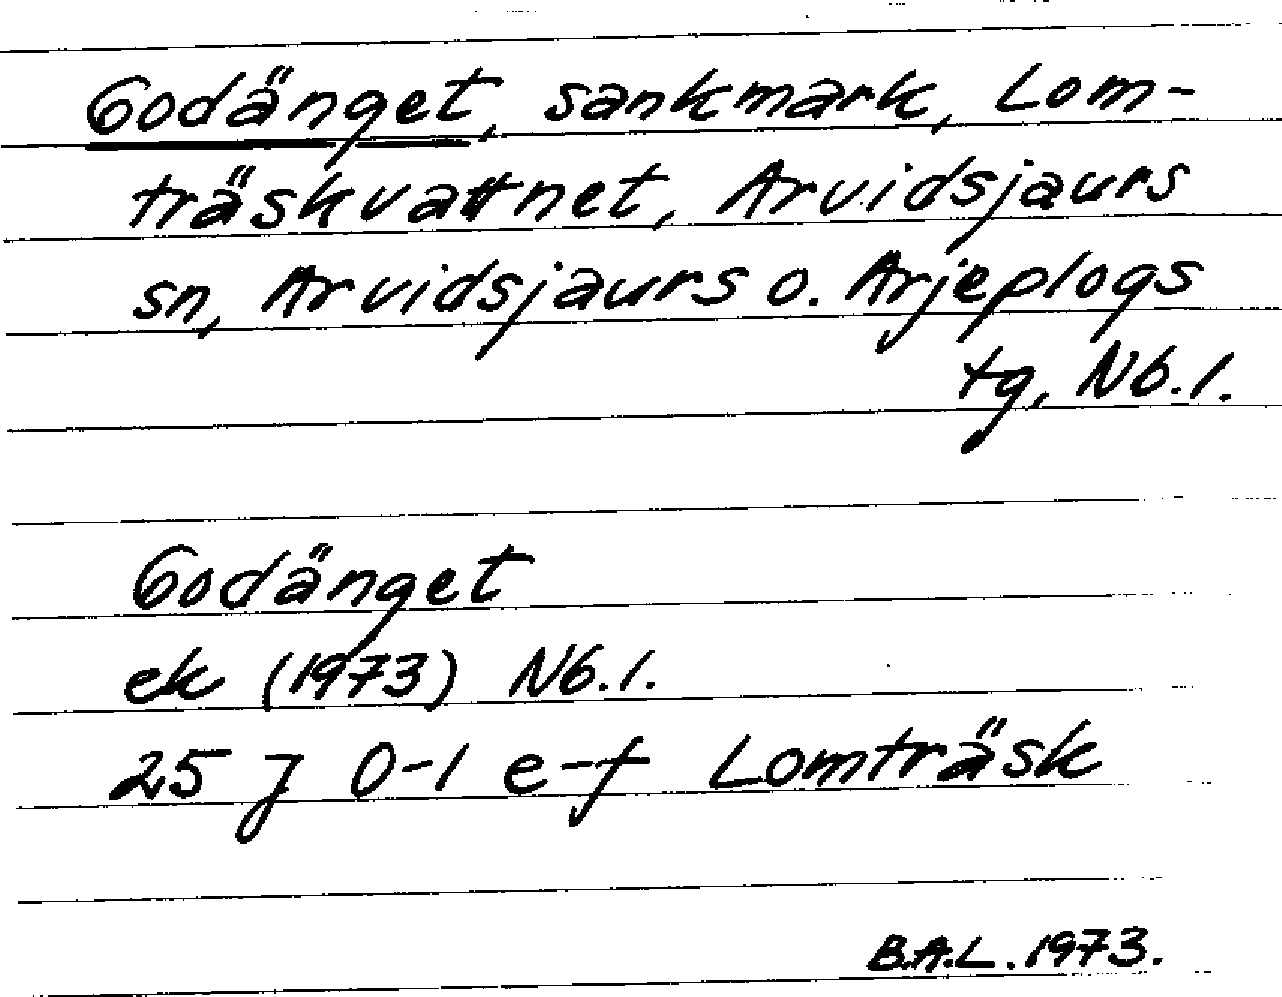 Godänget, sankmark, Lom-
träskvattnet, Arvidsjaurs
sn, Arvidsjaurs o. Arjeplogs
tg, Nb.l.
Godänget
ek (1973) Nb.l.
25 J 0-1 e-f Lomträsk
B.A.L. 1973.